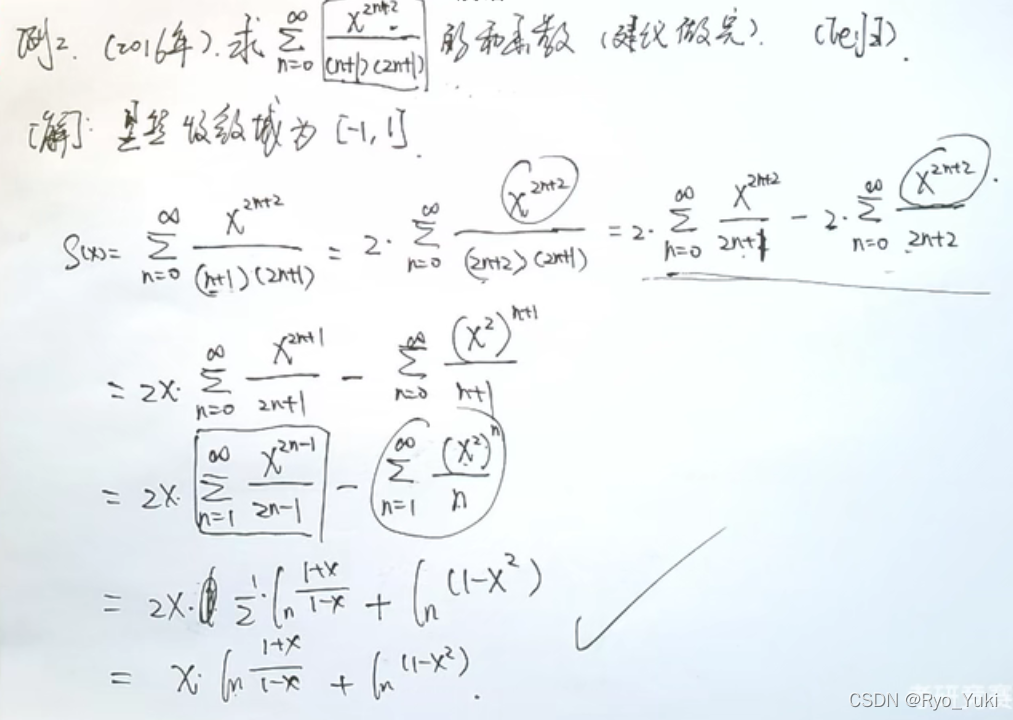 例2. (2016年). 求 \sum_{n=0}^{\infty} \frac{x^{2n+2}}{(n+1)(2n+1)} 的和函数 (建议做完).
[解]: 显然 收敛域为 [-1, 1].
S(x) = \sum_{n=0}^{\infty} \frac{x^{2n+2}}{(n+1)(2n+1)} = 2 \cdot \sum_{n=0}^{\infty} \frac{x^{2n+2}}{(2n+2)(2n+1)} = 2 \cdot \sum_{n=0}^{\infty} \frac{x^{2n+2}}{2n+1} - 2 \cdot \sum_{n=0}^{\infty} \frac{x^{2n+2}}{2n+2}.
= 2x \cdot \sum_{n=0}^{\infty} \frac{x^{2n+1}}{2n+1} - \sum_{n=0}^{\infty} \frac{(x^2)^{n+1}}{n+1}
= 2x \cdot \sum_{n=1}^{\infty} \frac{x^{2n-1}}{2n-1} - \sum_{n=1}^{\infty} \frac{(x^2)^n}{n}
= 2x \cdot \frac{1}{2} \cdot \ln \frac{1+x}{1-x} + \ln (1-x^2)
= x \cdot \ln \frac{1+x}{1-x} + \ln (1-x^2).
CSDN @Ryo_Yuki